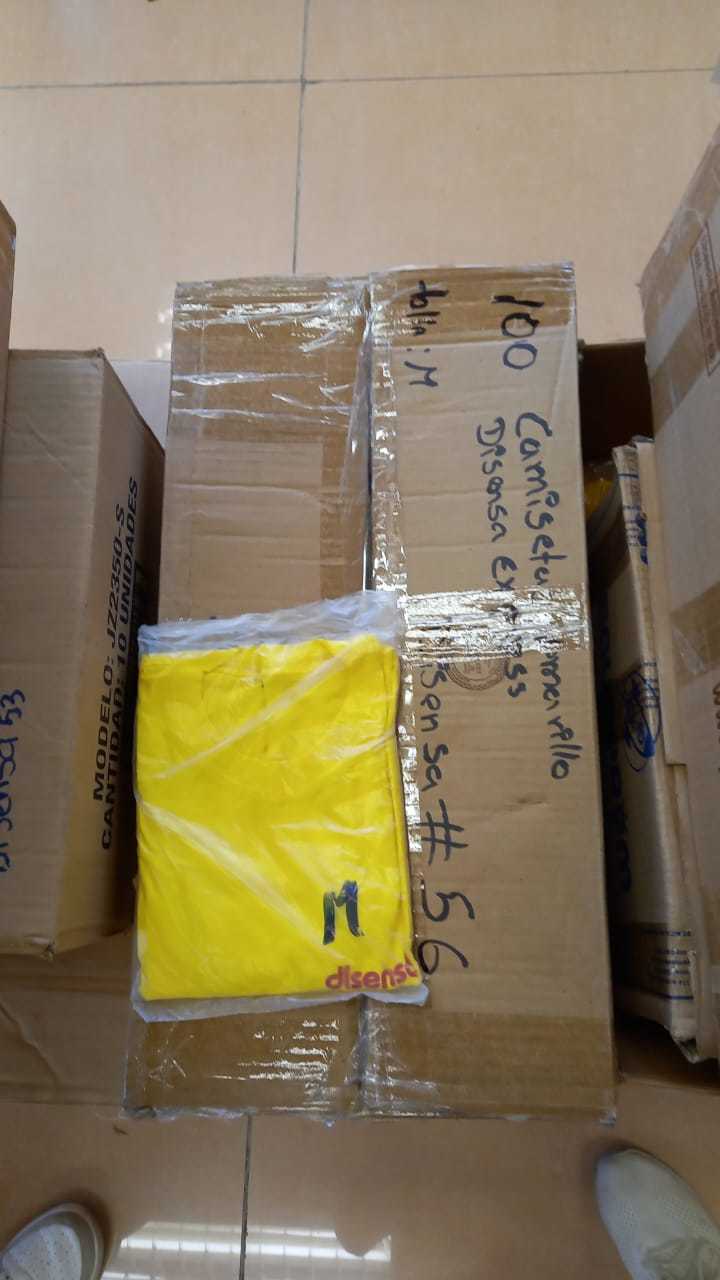 100 Camiseta Amarillo
Disensa Express
talla: M
Disensa # 56
M
disensa
MODELO: JZ2350-S
CANTIDAD: 10 UNIDADES
Disensa 53